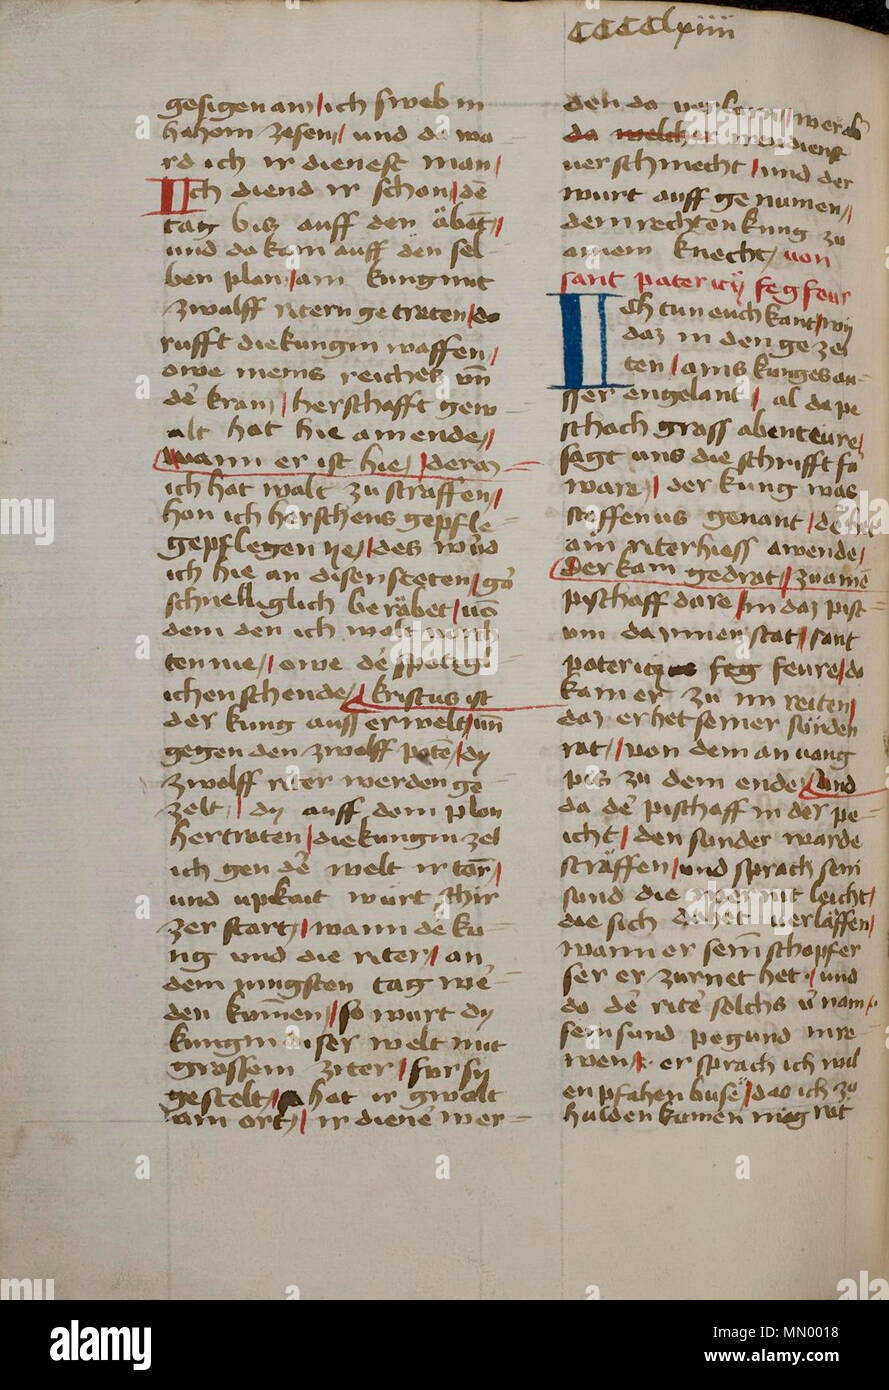 CCCClxiiii
gesigen am / ich sweb in
hahom zesen / und do wa
rd ich ir dienest man /
Ich diend ir schon / dē
tag bis auff den äbēt /
und do kam auff den sel
ben plon / am kung mit
zwalff ritern getreten / do
rufft die kungin waffen /
owe meins reiches vn̄
der kran / herschafft gew
alt hat hie am ende /
wann er ist hie / der
ich hat walt zu straffen /
hon ich herschens gepfle
gepflegen ye / des wird
ich hie an disen steten /
schnelliglich beräbet / vō
dem den ich wolt
ten nie / owe dē
ichen schende / kristus ist
der kung ausserwelt / un̄
gegen den zwelff poten / dy
zwalff riter werden ge
zelt / dy auff dem plon
her treten / die kungin zel
ich gen dē welt ir tor /
und upkait wurt
zer start / wann dē ku
ng und die riter / an
dem jungsten tag wē
den kumen / so wurt dy
kungin diser welt mit
grossem ziter / fur sy
gestelt / hat ir gwalt
am ort / ir dienē wer
den do verlorn / wer ab
do welcher mein dienst
verschmecht / und der
wurt auff genumen /
dem rechten kung zu
ainem knecht / von
sant patericy fegfeur
Ich tun euch kant / wy
daz in den gezei
ten / ains kunges au
sser engelant / al da pe
schach gross abenteure /
sagt uns die schrifft fo
ware / der kung was
steffenus genant / dē
ain riter hiess awende /
Der kam gedrat / zu aine
pyschaff dare / in daz pist
um da inner stat / sant
patericy feg feure / do
kam er zu im reiten /
daz er het seiner sunden
rat / von dem anvang
pis zu dem ende / und
da dē pischaff in der pe
icht / den sunder warde
sträffen / und sprach sein
sund die wer nit leicht /
die sich het verläffen /
wann er sein schopfer
ser er zurnet het / und
do dē ritē solchs v nam /
sein sund pegund in re
wen / er sprach ich wil
enpfahen buse / das ich zu
hulden kumen mag rat
alamy
Image ID: MN0018
www.alamy.com